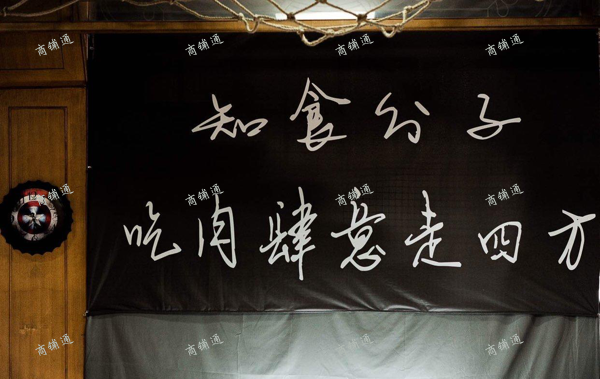 商铺通 商铺通 商铺通
知食分子
商铺通 商铺通 商铺通
吃肉肆意走四方
商铺通 商铺通 商铺通